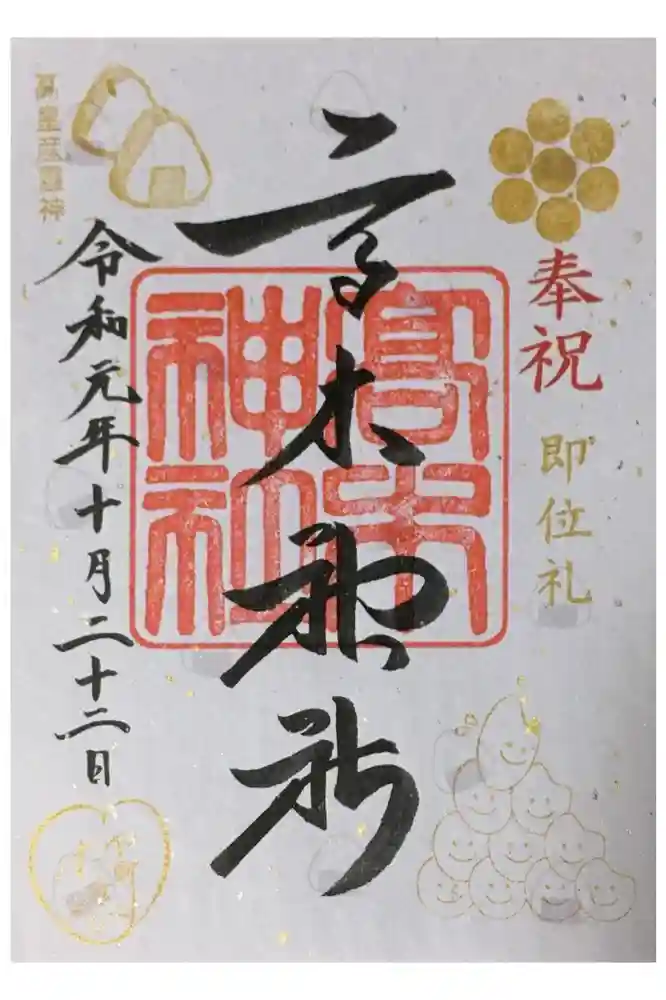 奉祝
即位礼
高木神社
高木
神社
令和元年十月二十二日
高皇産霊神